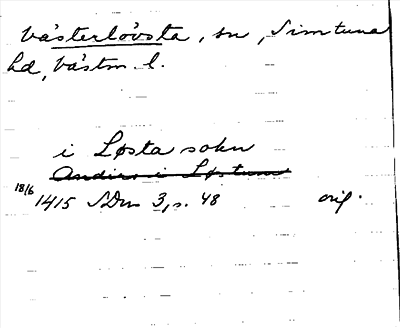 Västerlövsta, sn, Simtuna
hd, Västm. l.
i Løsta sokn
Andirs i Løstum
18/6 1415 SDns 3, s. 48 orig.